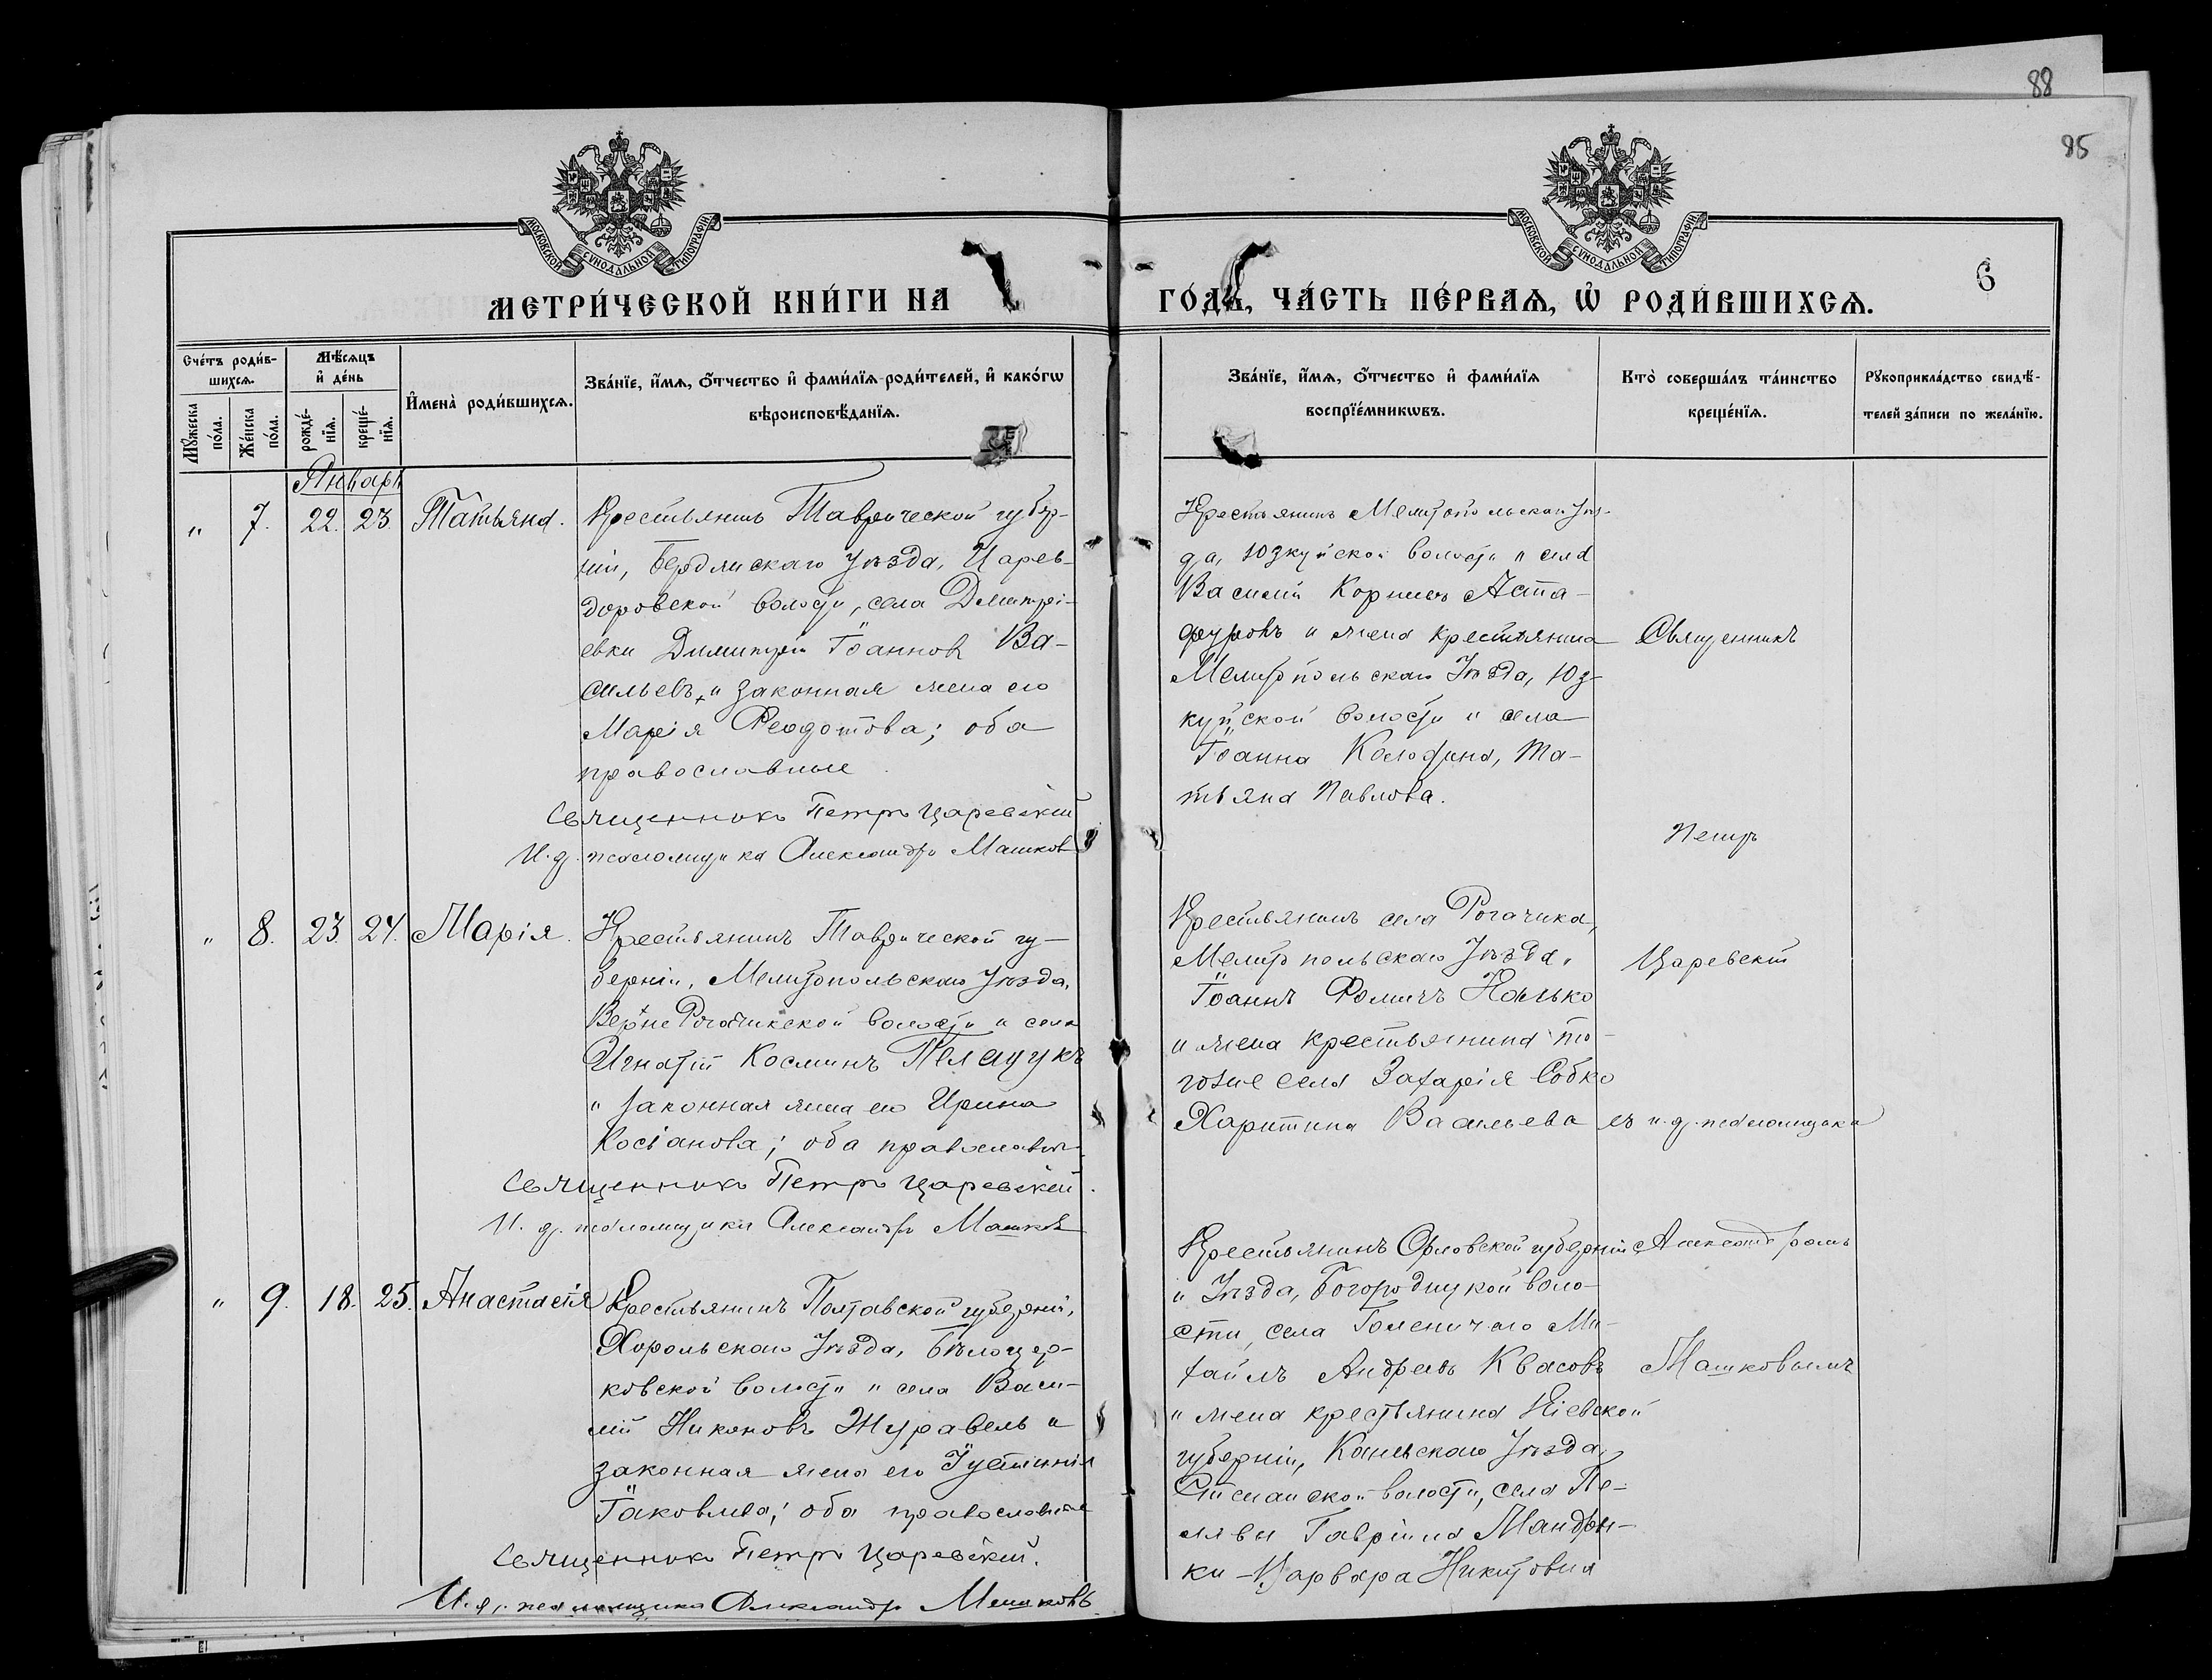 88
85
МОСКОВСКОЙ СѴНОДАЛЬНОЙ ТИПОГРАФІИ
МОСКОВСКОЙ СѴНОДАЛЬНОЙ ТИПОГРАФІИ
6
МЕТРИ́ЧЕСКОЙ КНИ́ГИ НА
ГО́ДЪ, ЧА́СТЬ ПЕ́РВАѦ, Ѡ҆ РОДИ́ВШИХСѦ.
Сче́тъ роди́в-
шихсѧ.
Мꙋ́жеска по́ла.
Же́нска по́ла.
Мѣ́сѧцъ
и҆ де́нь
рожде́-
нїѧ.
креще́-
нїѧ.
И҆мена̀ роди́вшихсѧ.
Зва́нїе, и҆́мѧ, ѻ҆́тчество и҆ фами́лїѧ роди́телей, и҆ како́гѡ
вѣроисповѣ́данїѧ.
Зва́нїе, и҆́мѧ, ѻ҆́тчество и҆ фами́лїѧ
воспрїе́мникѡвъ.
Кто̀ соверша́лъ та́инство
креще́нїѧ.
Рꙋкоприкла́дство свидѣ́-
телей за́писи по жела́нїю.
Январь
" 7. 22. 23. Татьяна.
Крестьянинъ Таврической губер-
ніи, Бердянскаго уѣзда, Царев-
даровской волости, села Димитрі-
евки Димитрій Іоанновъ Ва-
сильевъ, и законная жена его
Марія Феодотова; оба
православные.
Священникъ Петръ Царевскій
И. д. псаломщика Александръ Машковъ
Крестьянинъ Мелитопольскаго уѣз-
да, Юзкуйской волости и села
Василій Корнеевъ Аста-
фуровъ и жена крестьянина
Мелитопольскаго уѣзда, Юз-
куйской волости и села
Іоанна Колодина, Та-
тьяна Павлова.
Священникъ
Петръ
Царевскій
съ и. д. псаломщика
Александромъ
Машковымъ
" 8. 23. 24. Марія.
Крестьянинъ Таврической гу-
берніи, Мелитопольскаго уѣзда,
Верхне Рогачикской волости и села
Игнатій Косминъ Пелащукъ
и законная жена его Ирина
Косіанова; оба православн.
Священникъ Петръ Царевскій.
И. д. псаломщика Александръ Машковъ
Крестьянинъ села Рогачика,
Мелитопольскаго уѣзда,
Іоаннъ Фомичъ
и жена крестьянина то-
гоже села Захарія Собко
Харитина Васильева
" 9. 18. 25. Анастасія
Крестьянинъ Полтавской губерніи,
Хорольскаго уѣзда, Бѣлоцер-
ковской волости и села Васи-
лій Никоновъ Журавель и
законная жена его Іустинія
Іаковлева; оба православные
Священникъ Петръ Царевскій.
И. д. псаломщика Александръ Машковъ
Крестьянинъ Орловской губерніи
и уѣзда, Богородицкой воло-
сти, села Ми-
хаилъ Андреевъ Квасовъ
и жена крестьянина Кіевской
губерніи, уѣзда,
волости, села Пе-
лявы Гавріила Мандры-
ки – Варвара Никитовна